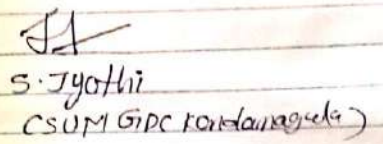 S. Jyothi
(SUM GDC Kondanagula)